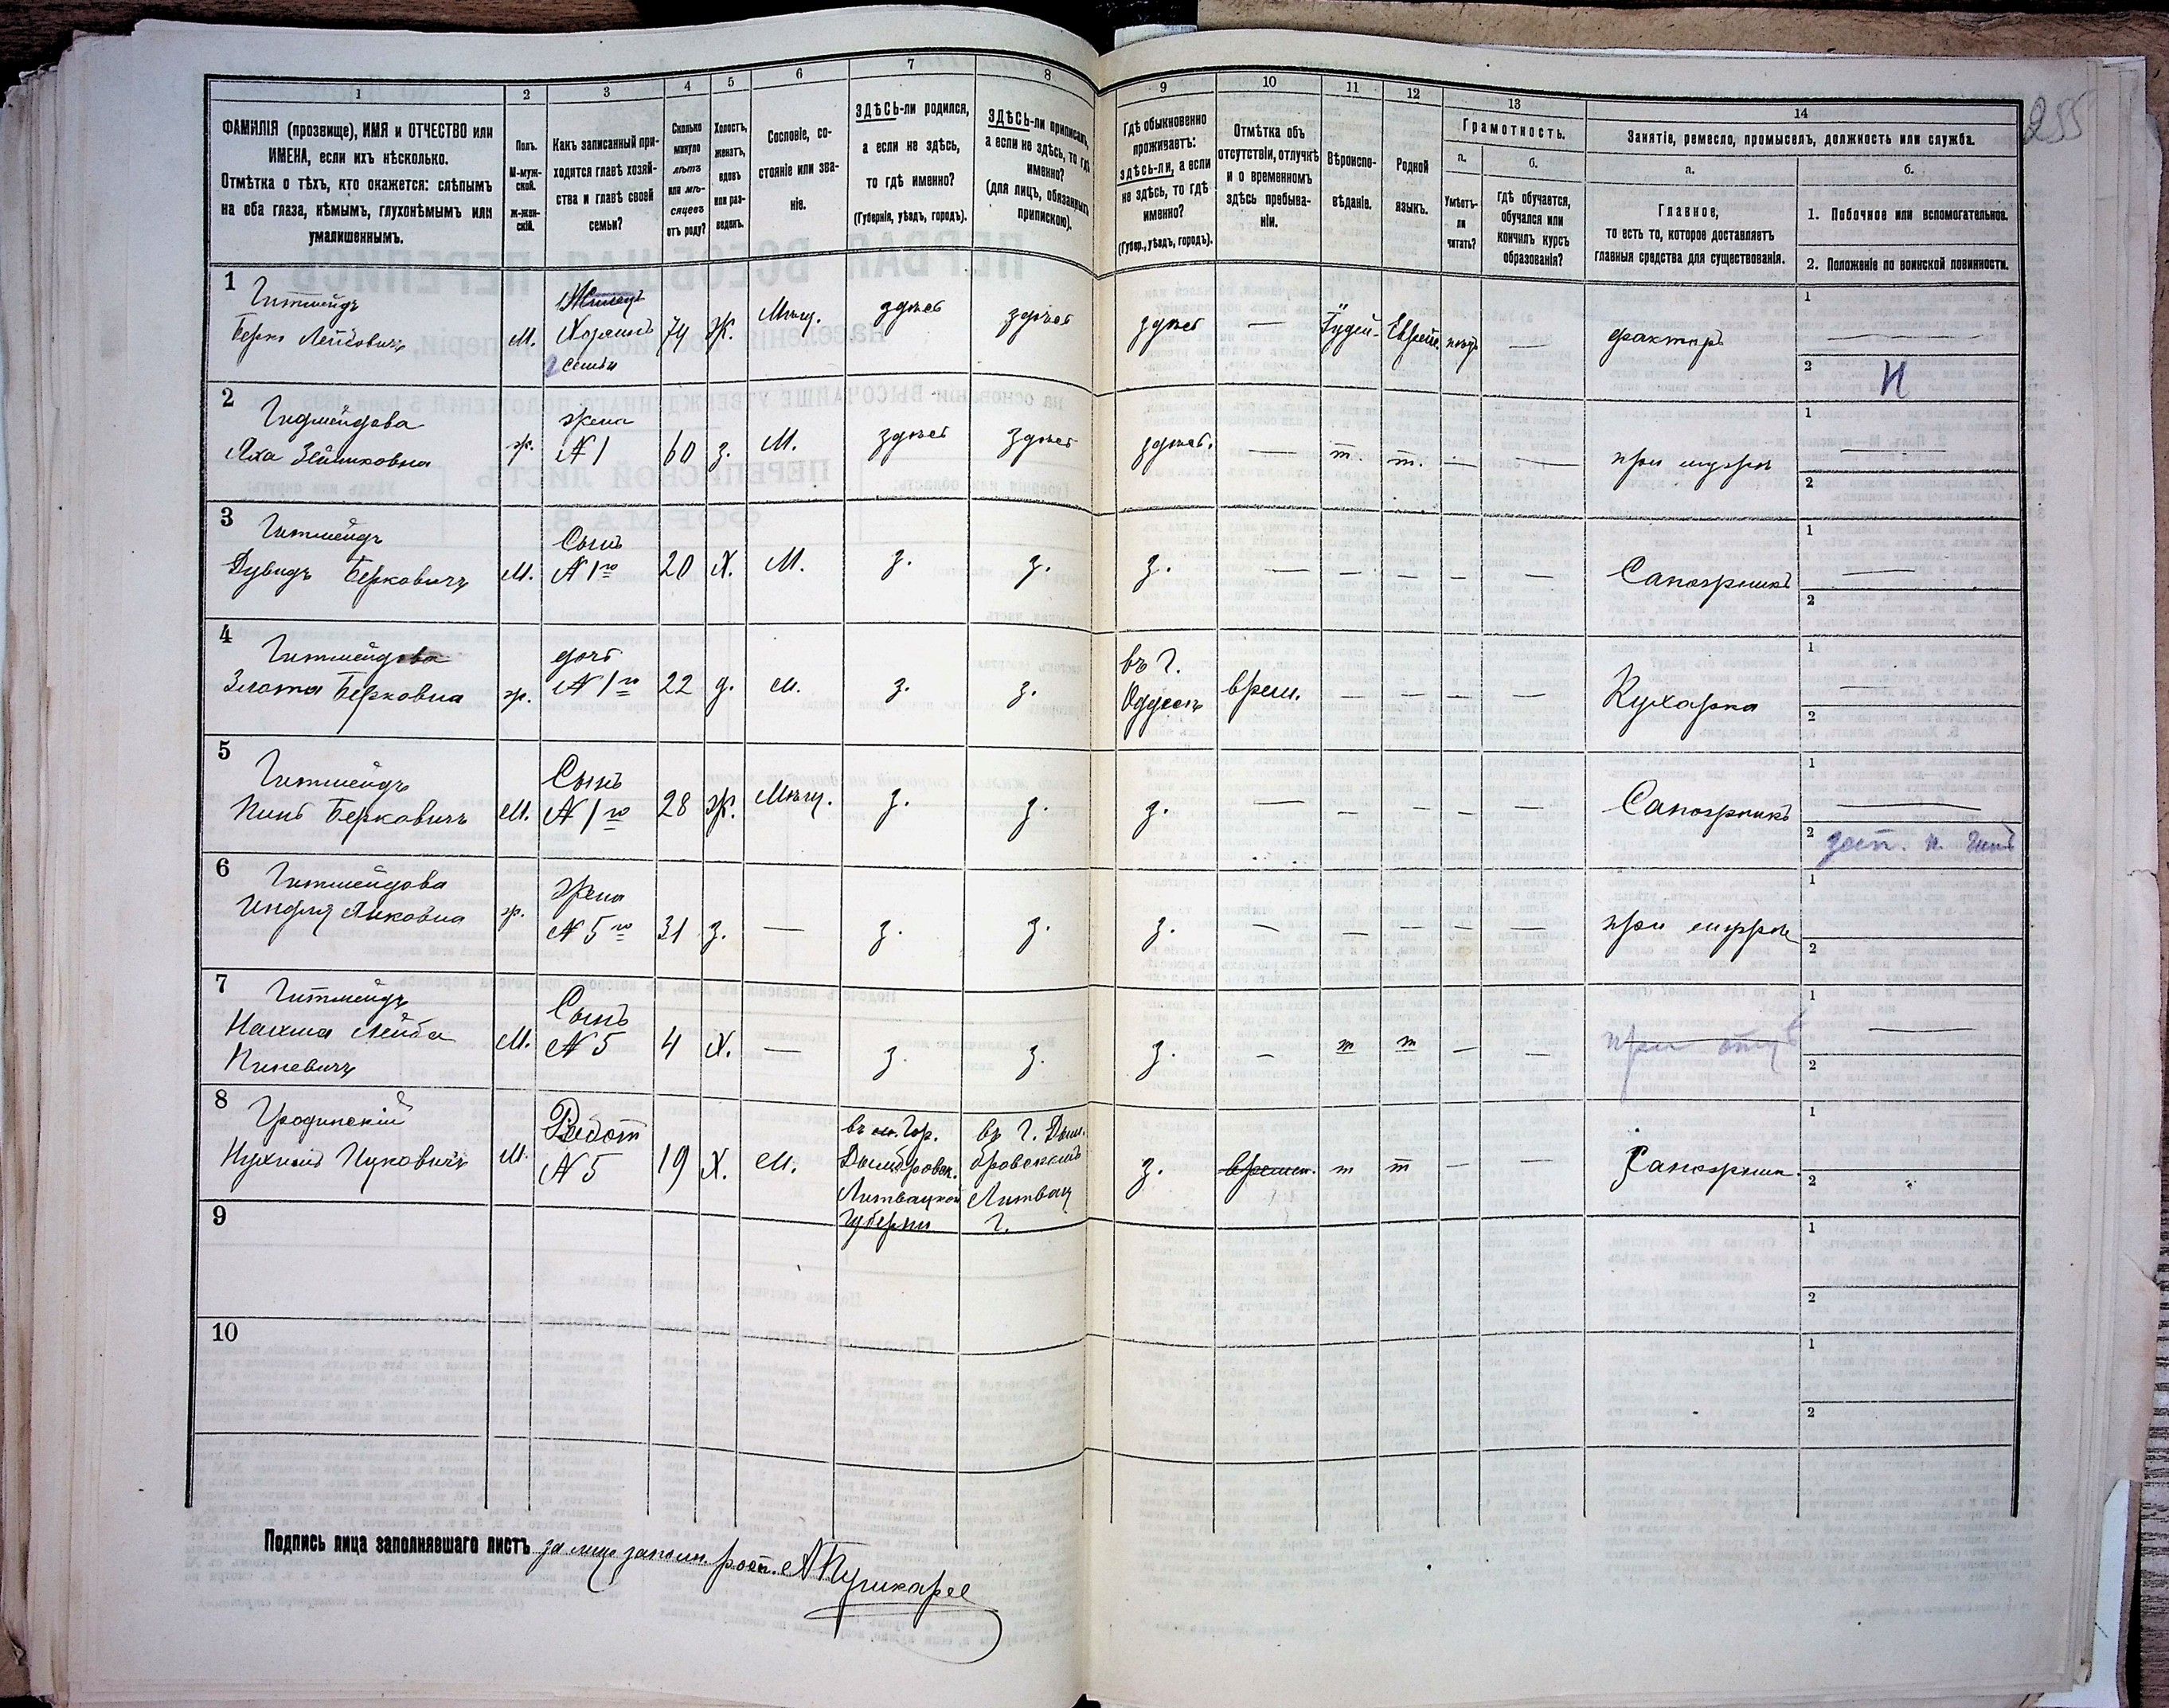 255
1 2 3 4 5 6 7 8 9 10 11 12 13 14
ФАМИЛІЯ (прозвище), ИМЯ и ОТЧЕСТВО или
ИМЕНА, если ихъ нѣсколько.
Отмѣтка о тѣхъ, кто окажется: слѣпымъ
на оба глаза, нѣмымъ, глухонѣмымъ или
умалишеннымъ.
Полъ.
М-муж-
ской.
Ж-жен-
скій.
Какъ записанный при-
ходится главѣ хозяй-
ства и главѣ своей
семьи?
Сколько
минуло
лѣтъ
или мѣ-
сяцевъ
отъ роду?
Холостъ,
женатъ,
вдовъ
или раз-
веденъ.
Сословіе, со-
стояніе или зва-
ніе.
ЗДѢСЬ-ли родился,
а если не здѣсь,
то гдѣ именно?
(Губернія, уѣздъ, городъ).
ЗДѢСЬ-ли приписанъ,
а если не здѣсь, то гдѣ
именно?
(для лицъ, обязанныхъ
припискою).
Гдѣ обыкновенно
проживаетъ:
здѣсь-ли, а если
не здѣсь, то гдѣ
именно?
(Губер., уѣздъ, городъ).
Отмѣтка объ
отсутствіи, отлучкѣ
и о временномъ
здѣсь пребыва-
ніи.
Вѣроиспо-
вѣданіе.
Родной
языкъ.
Грамотность.
а.
Умѣетъ-
ли
читать?
б.
Гдѣ обучается,
обучался или
кончилъ курсъ
образованія?
Занятіе, ремесло, промыселъ, должность или служба.
а.
Главное,
то есть то, которое доставляетъ
главныя средства для существованія.
б.
1. Побочное или вспомогательное.
2. Положеніе по воинской повинности.
1
Гитмейдъ
Берко Лейбовичъ
М.
Хозяинъ
семьи
74 Ж. Мѣщ. здѣсь здѣсь здѣсь — Іудей. Еврей. —
факторъ
1 —
2 Н
2
Гидмейдова
Яха
ж.
жена
№ 1
60 з. М. здѣсь здѣсь здѣсь. — т. т. — —
при мужѣ
1 —
2
3
Гитмейдъ
Дувидъ Берковичъ
М.
Сынъ
№ 1го
20 Х. М. з. з. з. — — — — —
Сапожникъ
1 —
2
4
Гитмейдова
Злота Берковна
ж.
дочь
№ 1го
22 д. М. з. з.
въ г.
Одессѣ
врем. — — — —
Кухарка
1 —
2
5
Гитмейдъ
Пинь Берковичъ
М.
Сынъ
№ 1го
28 ж. Мѣщ. з. з. з. — — — —
Сапожникъ
1 —
2
6
Гитмейдова
ж.
жена
№ 5го
31 з. — з. з. з. — — — — —
при мужѣ
1
2
7
Гитмейдъ
Лейба
Пиневичъ
М.
Сынъ
№ 5
4 Х. — з. з. з. — т т — —
при отцѣ
1 —
2
8
Гродинскій
М.
Работ
№ 5
19 Х. М.
губерніи
з. времен. т т — —
Сапожник.
1
2
9
1
2
10
1
2
Подпись лица заполнявшаго листъ за лицо заполн. росп. А Пушкарев